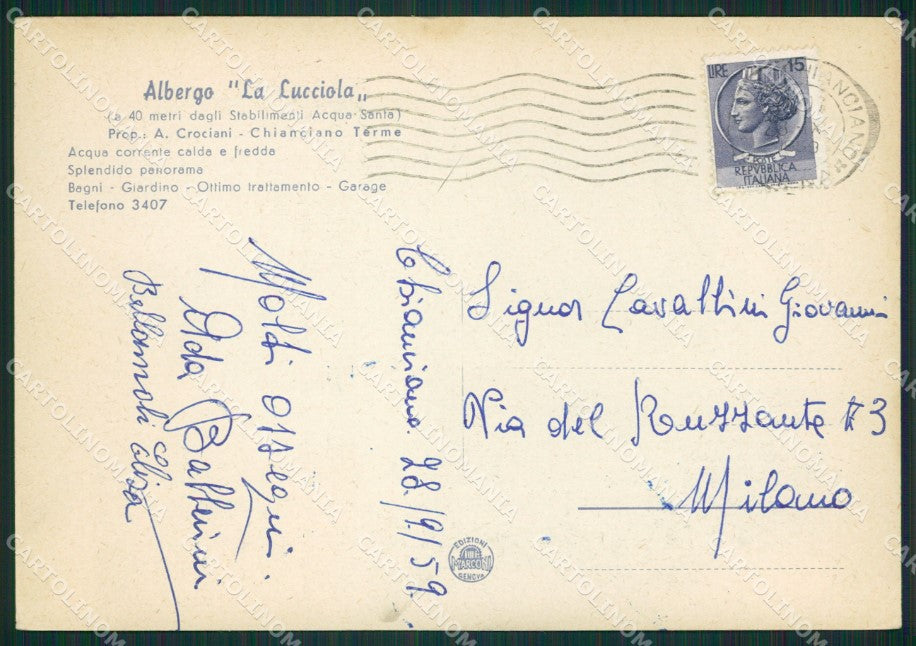 Albergo "La Lucciola"
(a 40 metri dagli Stabilimenti Acqua Santa)
Prop.: A. Crociani - Chianciano Terme
Acqua corrente calda e fredda
Splendido panorama
Bagni - Giardino - Ottimo trattamento - Garage
Telefono 3407
LIRE 15
POSTE
REPVBBLICA
ITALIANA
CHIANCIANO
Chianciano 28/9/59.
Molti ossequi.
Ada Ballerini
Elisa
Signor Cavallini Giovanni
Via del Ruzzante N 3
Milano
EDIZIONI
MARCONI
GENOVA
CARTOLINOMANIA